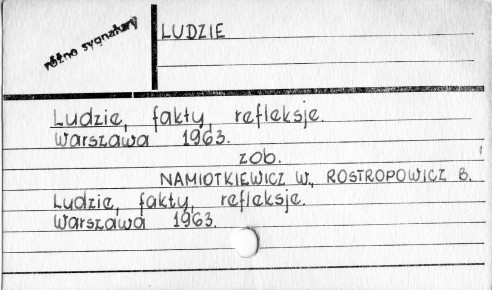 różne sygnatury
LUDZIE
Ludzie, fakty, refleksje.
Warszawa 1963.
zob.
NAMIOTKIEWICZ W., ROSTROPOWICZ B.
Ludzie, fakty, refleksje.
Warszawa 1963.